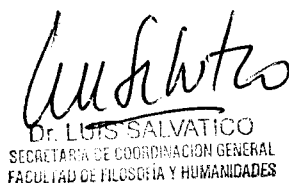 Dr. LUIS SALVATICO
SECRETARÍA DE COORDINACIÓN GENERAL
FACULTAD DE FILOSOFÍA Y HUMANIDADES